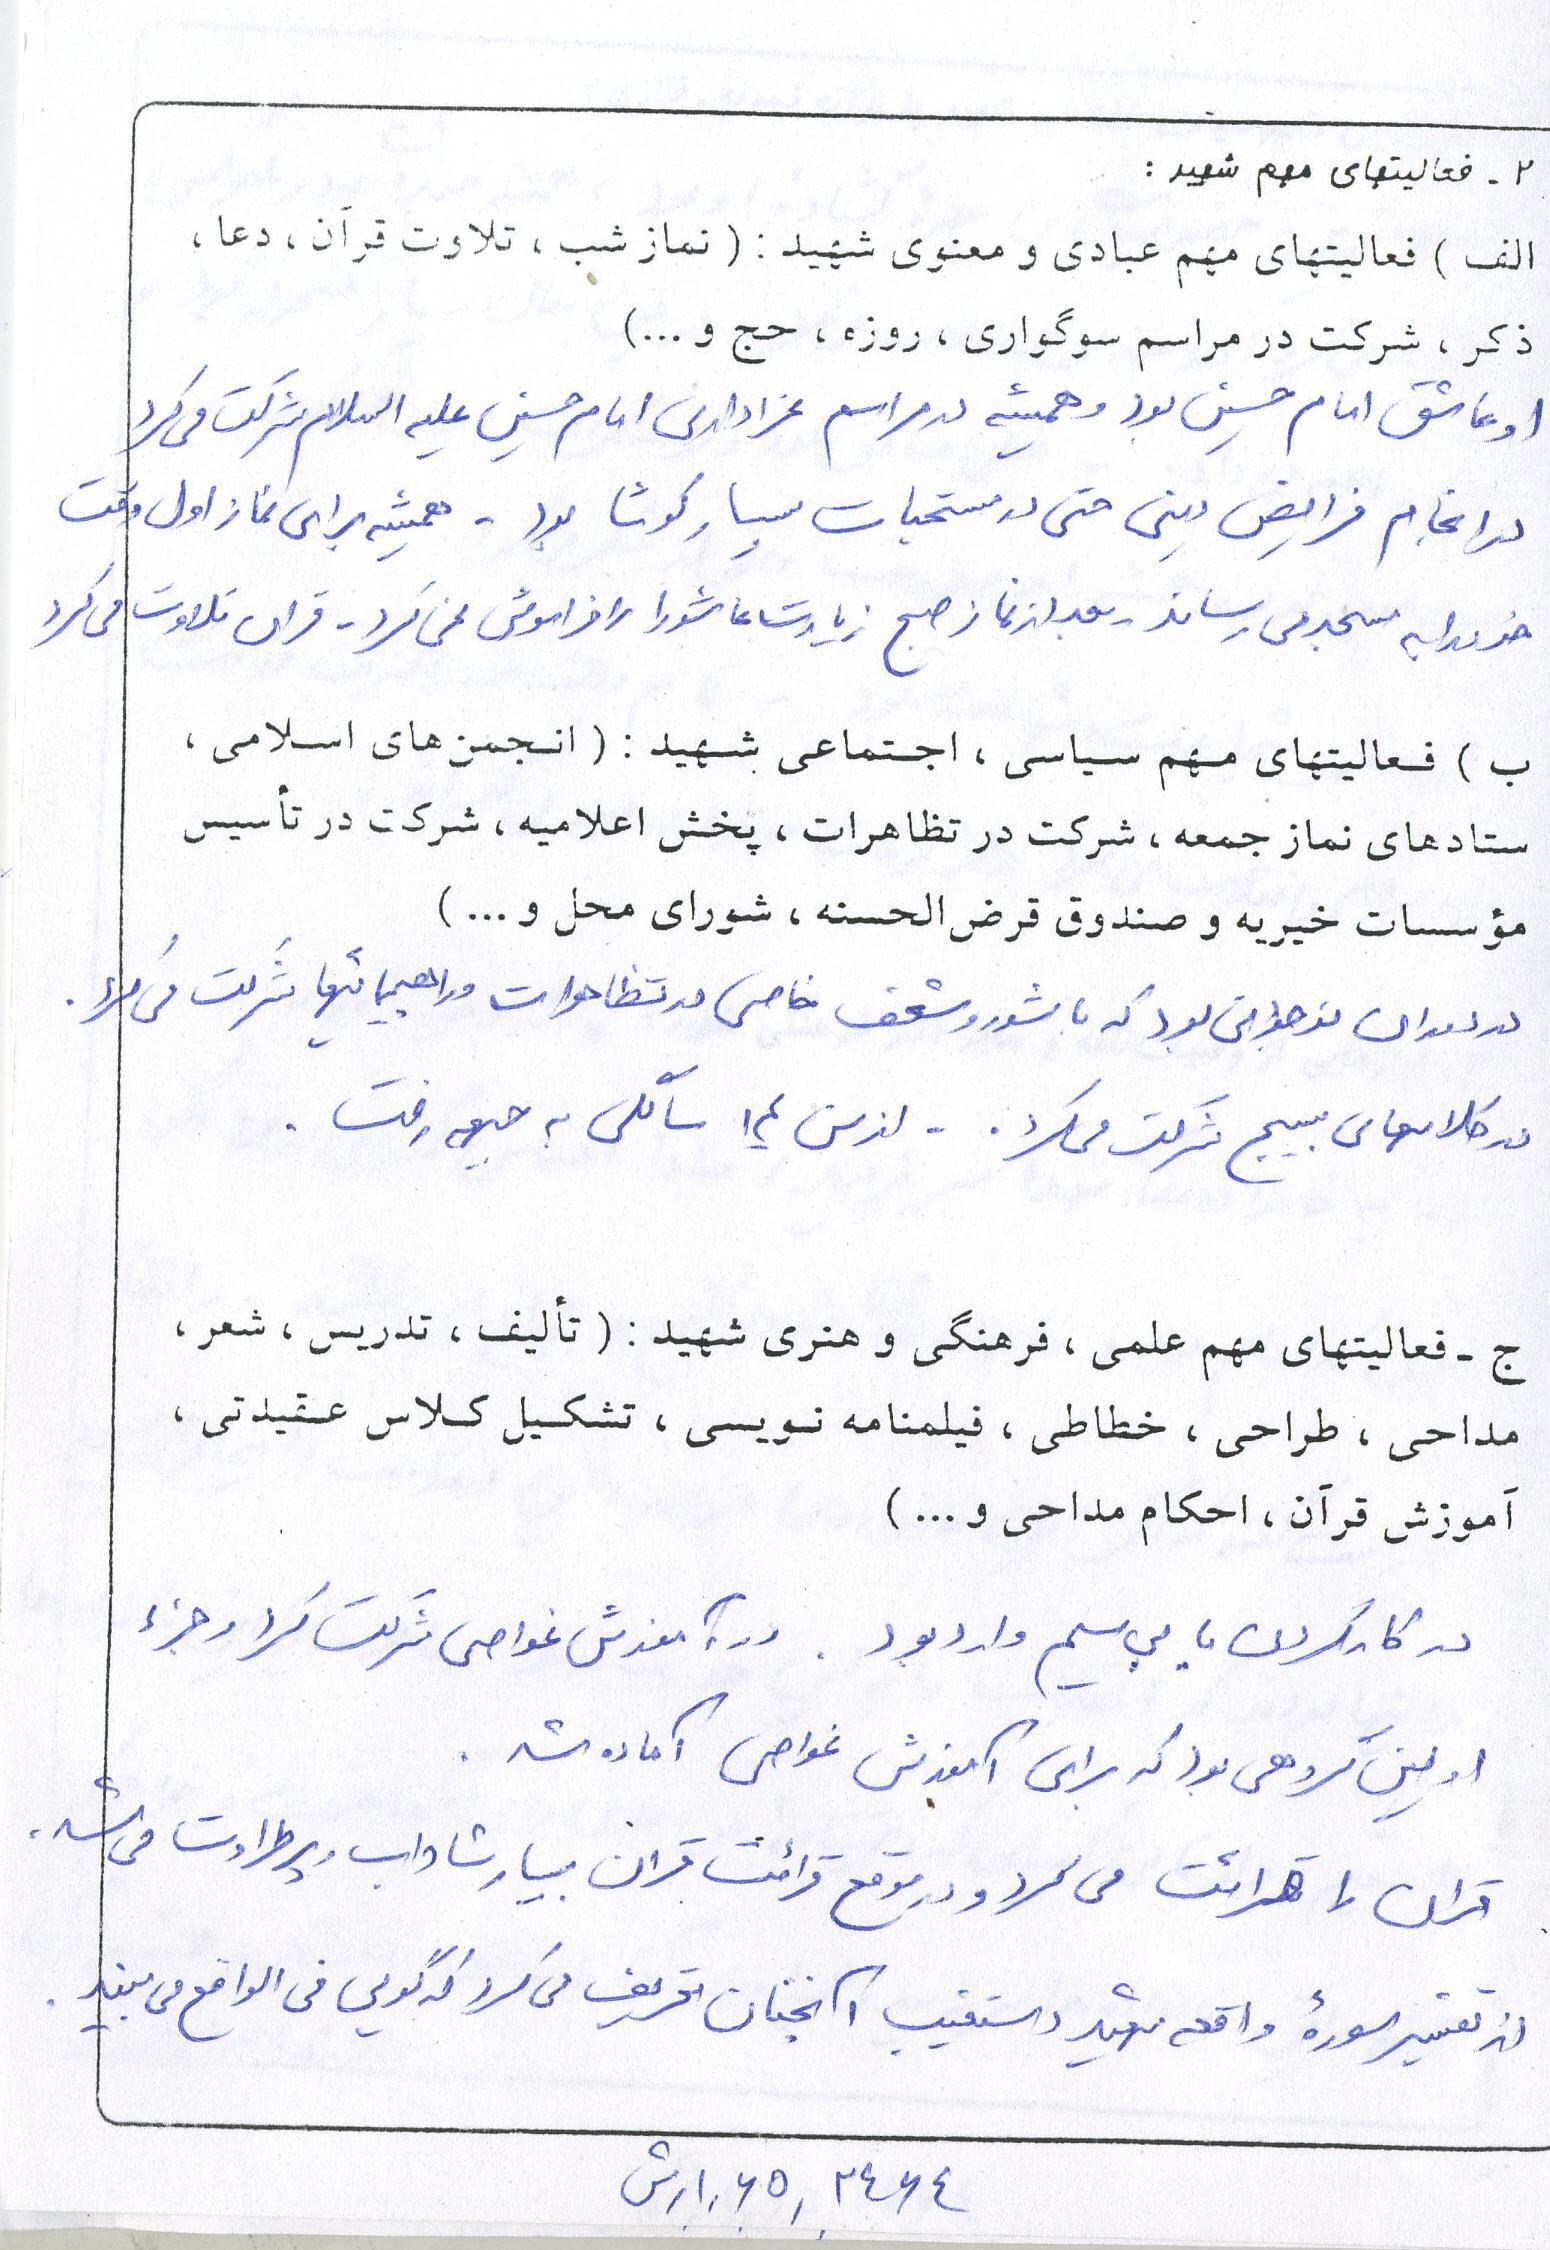 ۲ - فعالیتهای مهم شهید :
الف ) فعالیتهای مهم عبادی و معنوی شهید : ( نماز شب ، تلاوت قرآن ، دعا ،
ذکر ، شرکت در مراسم سوگواری ، روزه ، حج و ...)
او عاشق امام حسین بود و همیشه در مراسم عزاداری امام حسین علیه السلام شرکت می کرد
در انجام فرایض دینی حتی در مستحبات بسیار کوشا بود - همیشه برای نماز اول وقت
خود را به مسجد می رساند - بعد از نماز صبح زیارت عاشورا را فراموش نمی کرد - قران تلاوت می کرد
ب ) فعالیتهای مهم سیاسی ، اجتماعی شهید : ( انجمن های اسلامی ،
ستادهای نماز جمعه ، شرکت در تظاهرات ، پخش اعلامیه ، شرکت در تأسیس
مؤسسات خیریه و صندوق قرض الحسنه ، شورای محل و ... )
در دوران نوجوانی بود که با شور و شعف خاصی در تظاهرات و راهپیمائیها شرکت می کرد .
در کلاسهای بسیج شرکت می کرد . - از سن سالگی به جبهه رفت .
ج - فعالیتهای مهم علمی ، فرهنگی و هنری شهید : ( تألیف ، تدریس ، شعر ،
مداحی ، طراحی ، خطاطی ، فیلمنامه نویسی ، تشکیل کلاس عقیدتی ،
آموزش قرآن ، احکام مداحی و ... )
در کار کردن با بی سیم وارد بود . در آموزش غواصی شرکت کرد و جزء
اولین گروهی بود که برای آموزش غواصی آماده شد .
قران را قرائت می کرد و در موقع قرائت قران بسیار شاداب و پرطراوت می شد .
از تفسیر سورهٔ واقعه آنچنان تعریف می کرد که گویی فی الواقع می بیند .